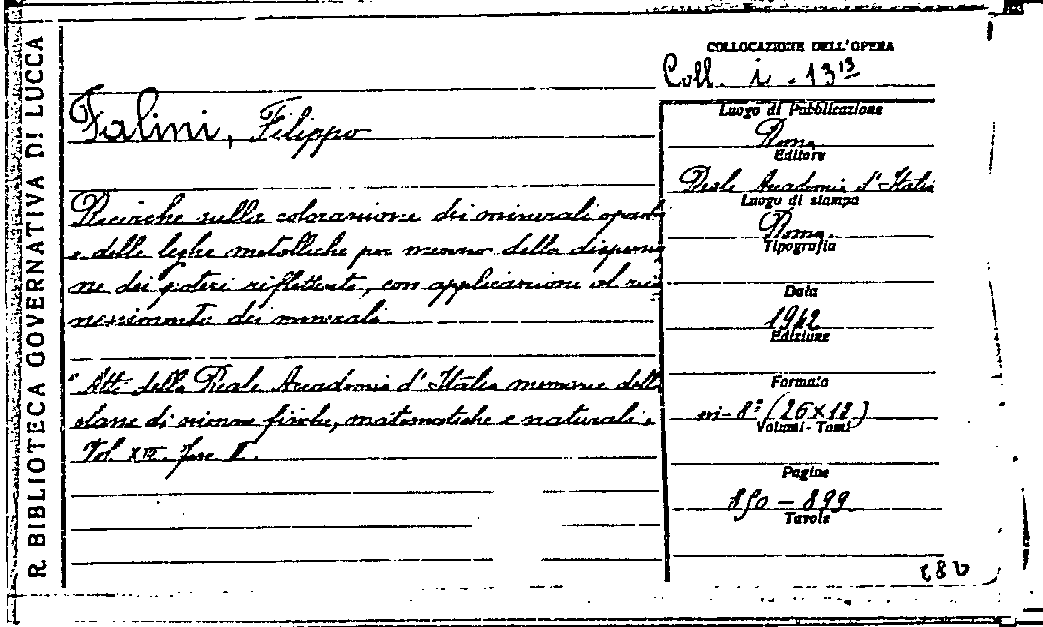 R. BIBLIOTECA GOVERNATIVA DI LUCCA
COLLOCAZIONE DELL'OPERA
Coll. i - 13¹³
Falini, Filippo
Ricerche sulla colorazione dei minerali opachi
e delle leghe metalliche per mezzo della dispersio
ne dei poteri riflettente, con applicazione al rico
noscimento dei minerali
"Atti della Reale Accademia d'Italia memorie della
classe di scienze fisiche, matematiche e naturali"
Vol. XIII. fasc II.
Luogo di Pubblicazione
Roma
Editore
Reale Accademia d'Italia
Luogo di stampa
Roma
Tipografia
Data
1942
Edizione
Formato
in-8° (26x18)
Volumi - Tomi
Pagine
850 - 899
Tavole